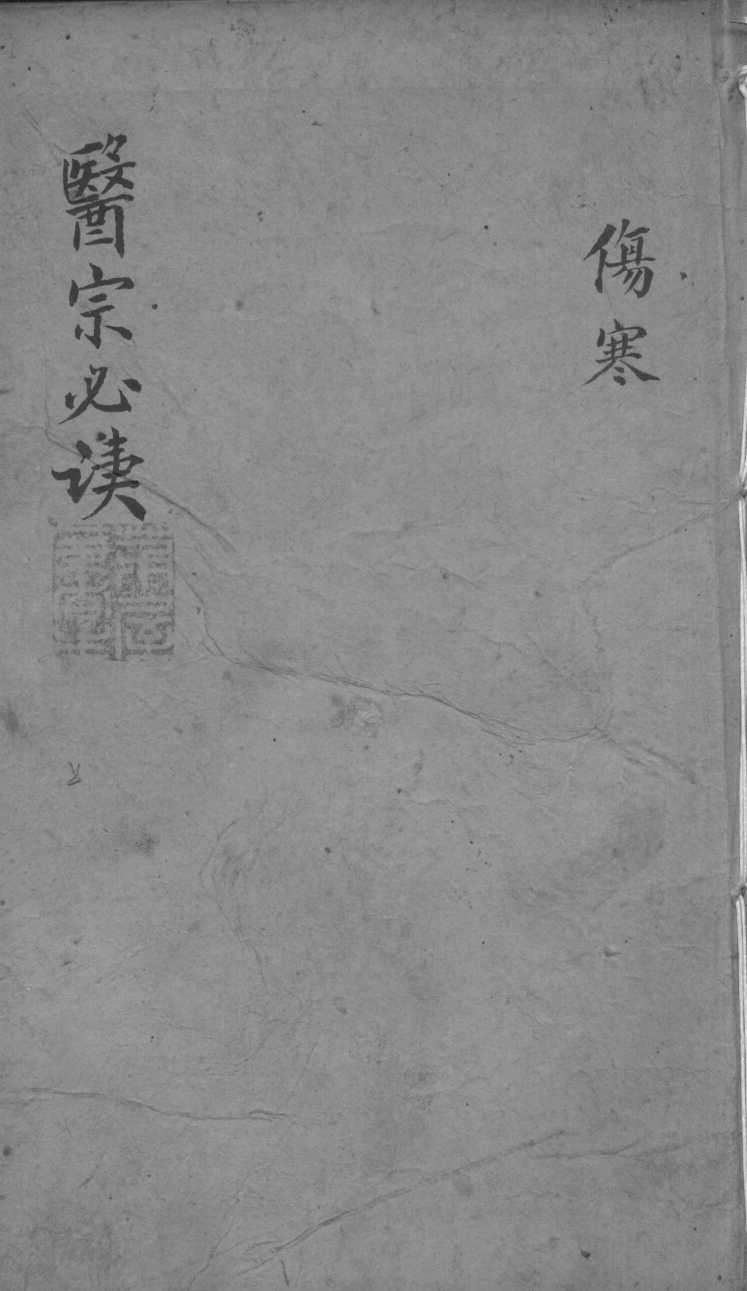 傷寒
醫宗必讀